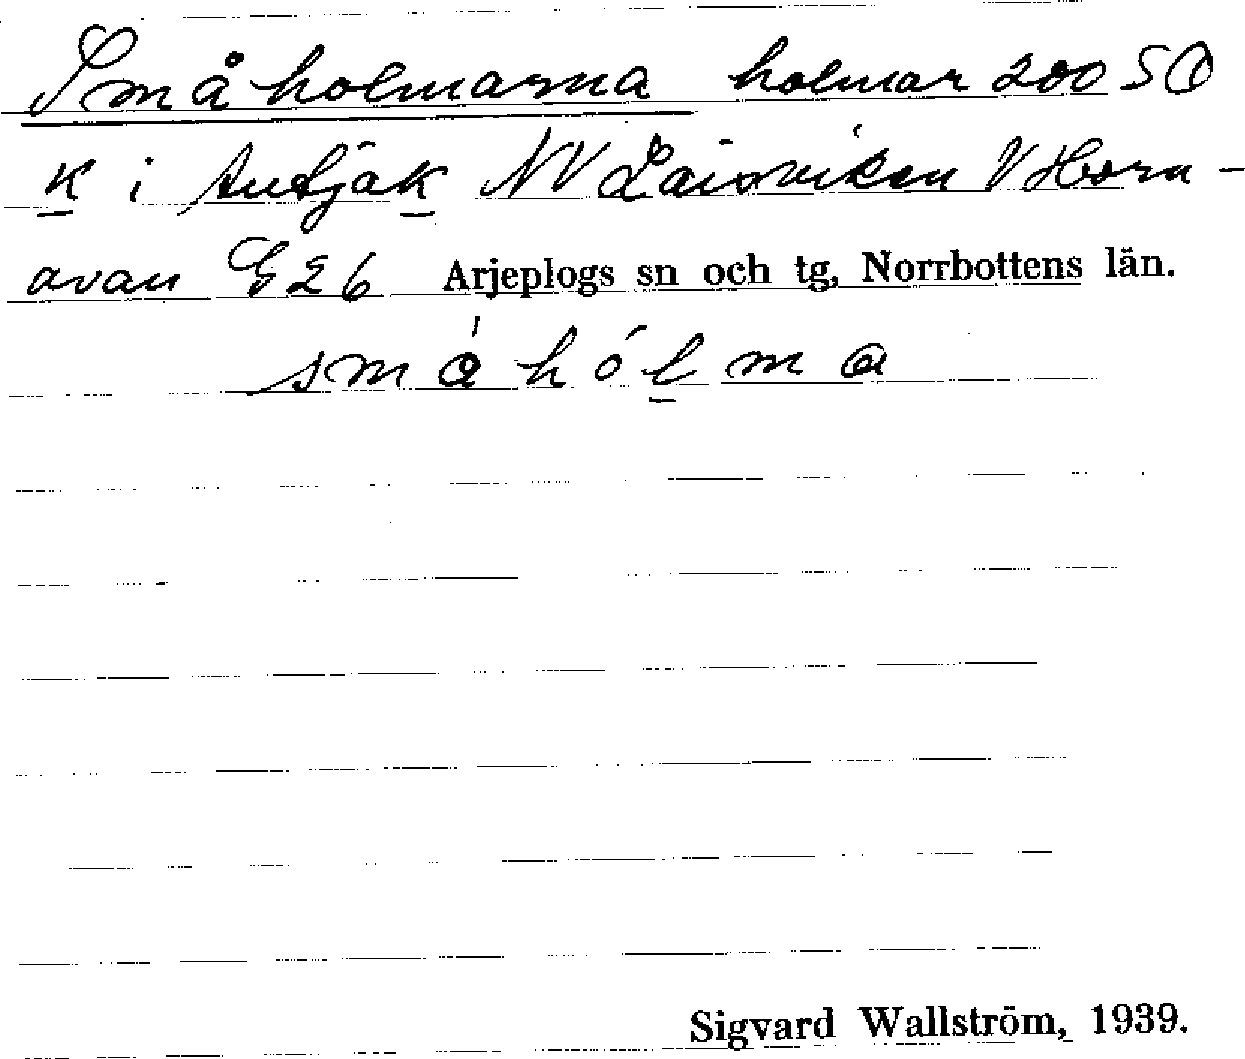 Småholmarna holmar 200 SO
k i Autjak NV Laisviken V Horn-
avan G26 Arjeplogs sn och tg, Norrbottens län.
småhólma
Sigvard Wallström, 1939.